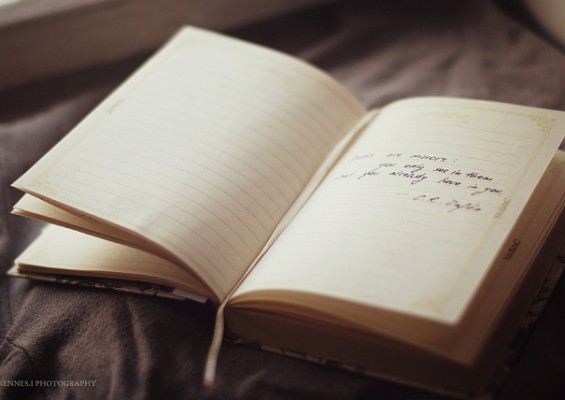 are mirrors :
you only see in them
what you already have in you.
— C.R. Zafón
KENNES.I PHOTOGRAPHY